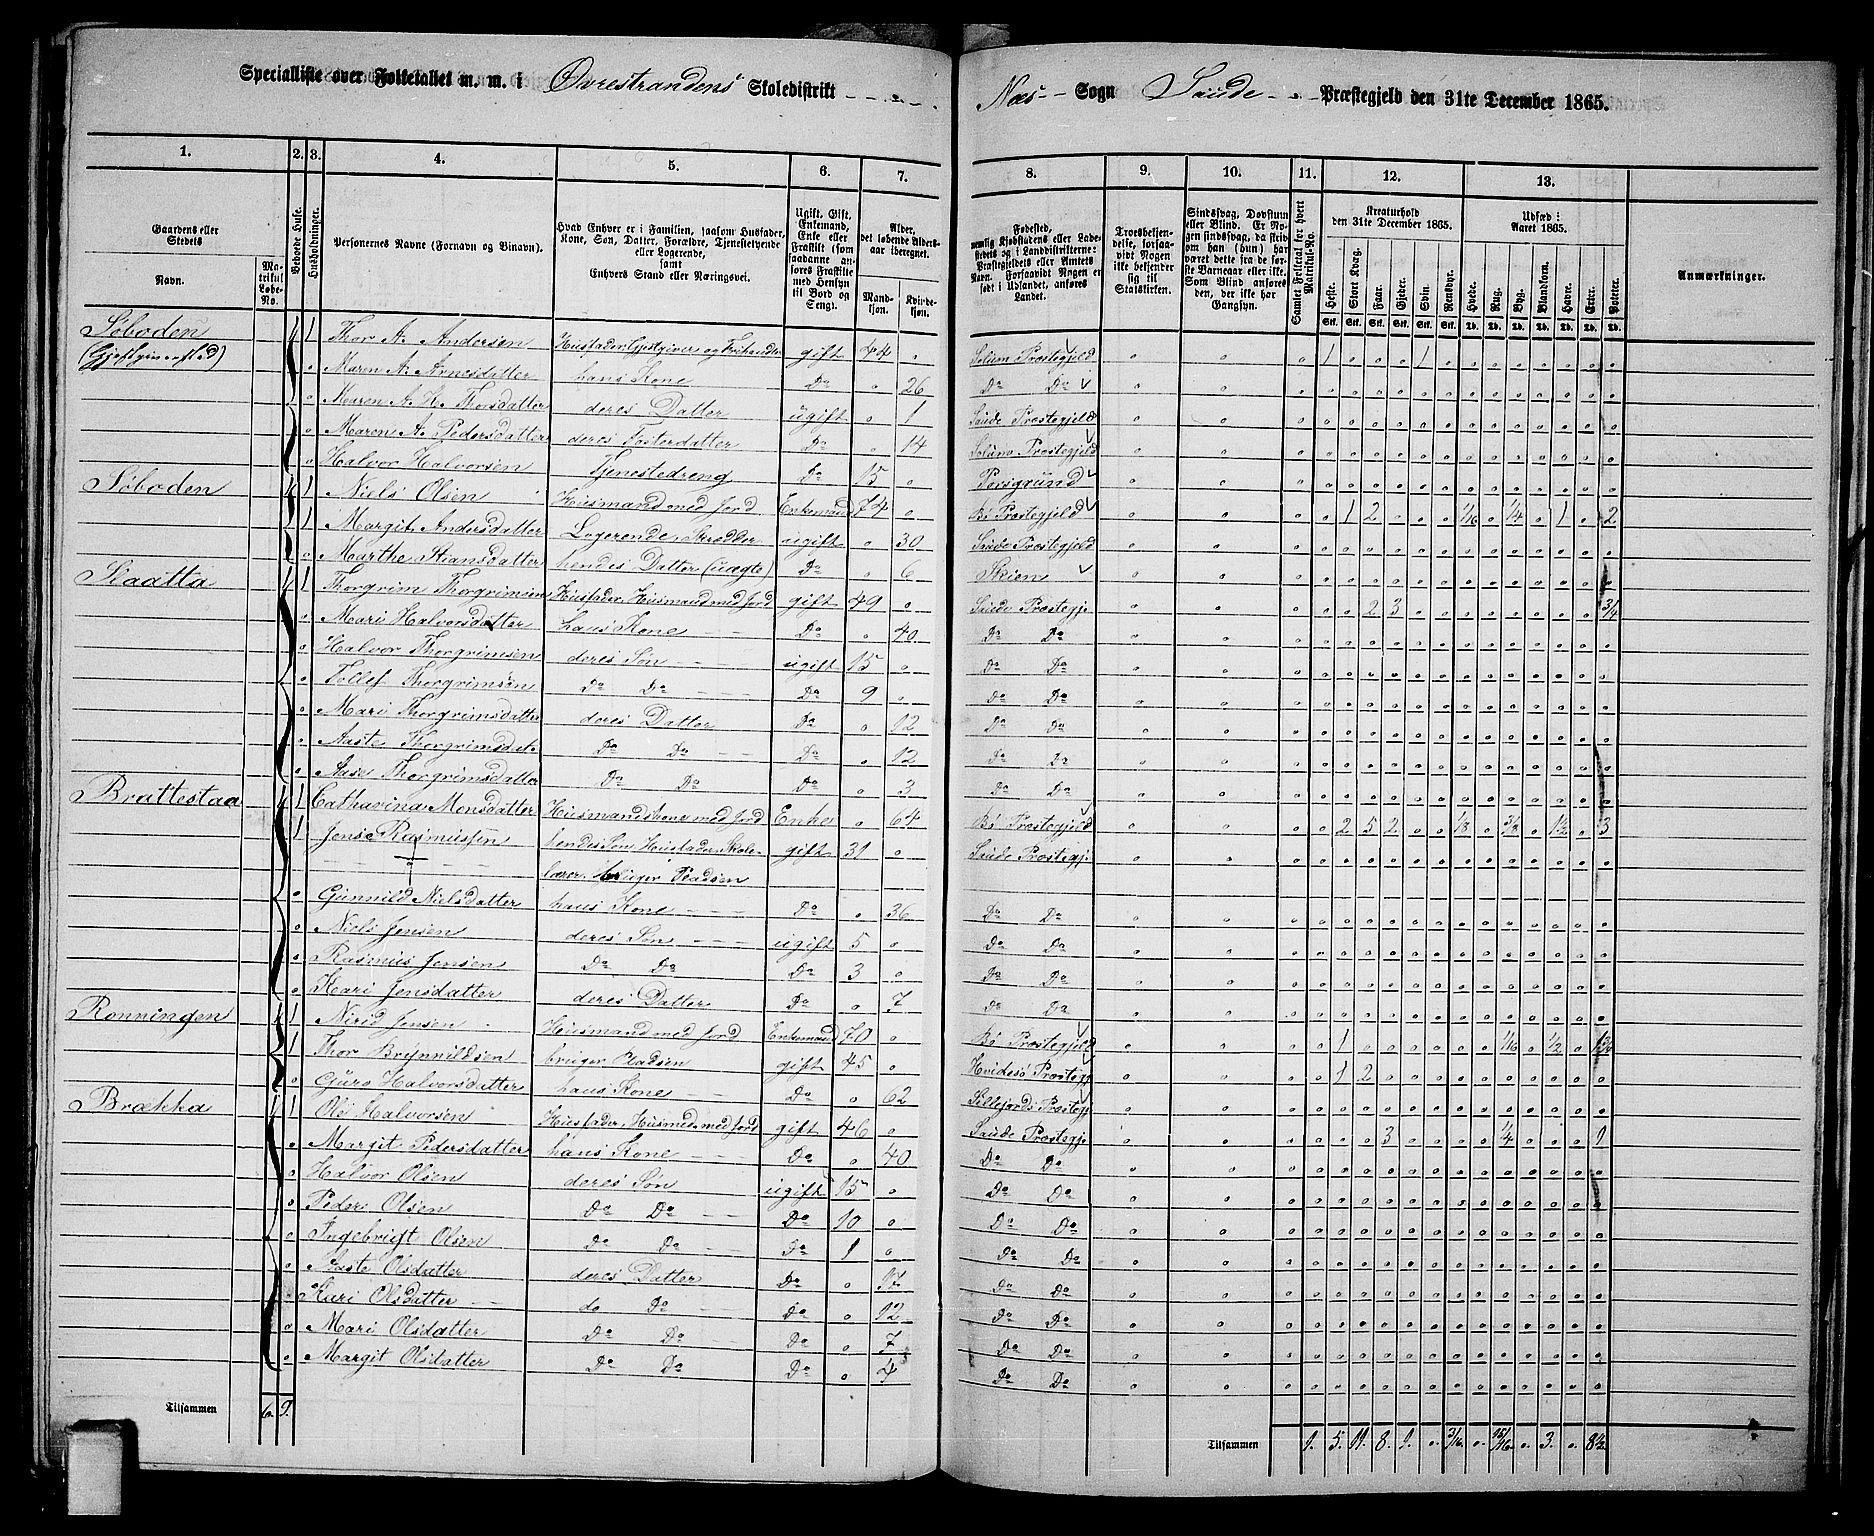 Specialliste over Folketallet m. m. i Øvrestrandens Skoledistrikt
Næs Sogn Saude Præstegjeld den 31te December 1865.
1. 2. 3. 4. 5. 6. 7. 8. 9. 10. 11. 12. 13.
Gaardens eller Stedets
Navn. Matrikul Løbe-No.
Beboede Huse.
Husholdninger.
Personernes Navne (Fornavn og Binavn).
Hvad Enhver er i Familien, saasom Husfader, Kone, Søn, Datter, Forældre, Tjenestetyende eller Logerende, samt Enhvers Stand eller Næringsvei.
Ugift, Gift, Enkemand, Enke eller Fraskilt (saadanne anføres Fraskilte med Hensyn til Bord og Seng).
Alder, det løbende Aldersaar iberegnet.
Mandkjøn. Kvindekjøn.
Fødested, nemlig Kjøbstadens eller Ladestedets og i Landdistrikterne: Præstegjeldets eller Amtets Navn. Forsaavidt Nogen er født i Udlandet, anføres Landet.
Troesbekjendelse, forsaavidt Nogen ikke bekjender sig til Statskirken.
Sindssvag, Døvstum eller Blind. Er Nogen sindssvag, da skrives om han (hun) har været dette fra de første Barneaar eller ikke. Som Blind anføres den, der ikke har Gangsyn.
Samlet Folketal for hvert Matrikul-No.
Kreaturhold den 31te December 1865.
Heste. Stort Kvæg. Faar. Gjeder. Svin. Rensdyr.
Udsæd i Aaret 1865.
Hvede. Rug. Byg. Blandkorn. Havre. Erter. Poteter.
Anmærkninger.
Søboden (Gjestgiversted) 1 1 Thor A. Andersen Husfader, Gjestgiver og Frihandler gift 44 Solum Præstegjeld 1 1
Maren A. Arnesdatter hans Kone Do 26 Do Do
Maren A. H. Thorsdatter deres Datter ugift 1 Saude Præstegjeld
Maren A. Pedersdatter deres Fosterdatter Do 14 Solum Præstegjeld
Halvor Halvorsen Tjenestedreng Do 15 Porsgrund
Søboden 1 1 Niels Olsen Husmand med Jord Enkemand 74 Bø Præstegjeld 1 2 1/16 1/4 1 2
1 Margit Andersdatter Logerende Skrædder ugift 30 Saude Præstegjeld
Marthe Hansdatter hendes Datter (uægte) Do 6 Skien
Kaatta 1 1 Thorgrim Thorgrimsen Husfader, Husmand med Jord gift 49 Saude Præstegj. 2 3 3/4
Mari Halvorsdatter hans Kone Do 40 Do Do
Halvor Thorgrimsen deres Søn ugift 15 Do Do
Tollef Thorgrimsen Do Do Do 9 Do Do
Mari Thorgrimsdatter deres Datter Do 12 Do Do
Aaste Thorgrimsdat. Do Do Do 12 Do Do
Aase Thorgrimsdatter Do Do Do 3 Do Do
Brattestaa 1 1 Catharina Monsdatter Husmandskone med Jord Enke 64 Bø Præstegjeld 2 5 2 1/8 3/8 1½ 3
1 Jens Rasmussen hendes Søn, Husfader, Skole- gift 31 Saude Præstegj.
lærer, bruger Pladsen
Gunnild Nielsdatter hans Kone Do 36 Do Do
Niels Jensen deres Søn ugift 5 Do Do
Rasmus Jensen Do Do Do 3 Do Do
Kari Jensdatter deres Datter Do 7 Do Do
Rønningen 1 1 Nirid Jensen Husmand med Jord Enkemand 70 Bø Præstegjeld 1 1/16 1/2
1 Thor Brynnildsen bruger Pladsen gift 45 Hvidesø Præstegj. 1 2
Guro Halvorsdatter hans Kone Do 62 Sillejords Præstegj.
Brækka 1 1 Ole Halvorsen Husfader, Husmd. med Jord gift 46 Saude Præstegj. 3 1/4 1
Margit Pedersdatter hans Kone Do 40 Do Do
Halvor Olsen deres Søn ugift 15 Do Do
Peder Olsen Do Do Do 10 Do Do
Ingebrigt Olsen Do Do Do 1 Do Do
Aaste Olsdatter deres Datter Do 17 Do Do
Kari Olsdatter do Do Do 12 Do Do
Mari Olsdatter Do Do Do 7 Do Do
Margit Olsdatter Do Do Do 4 Do Do
Tilsammen 6. 9.
Tilsammen 1. 5. 11. 8. 1. 3/16 15/16 3. 8½